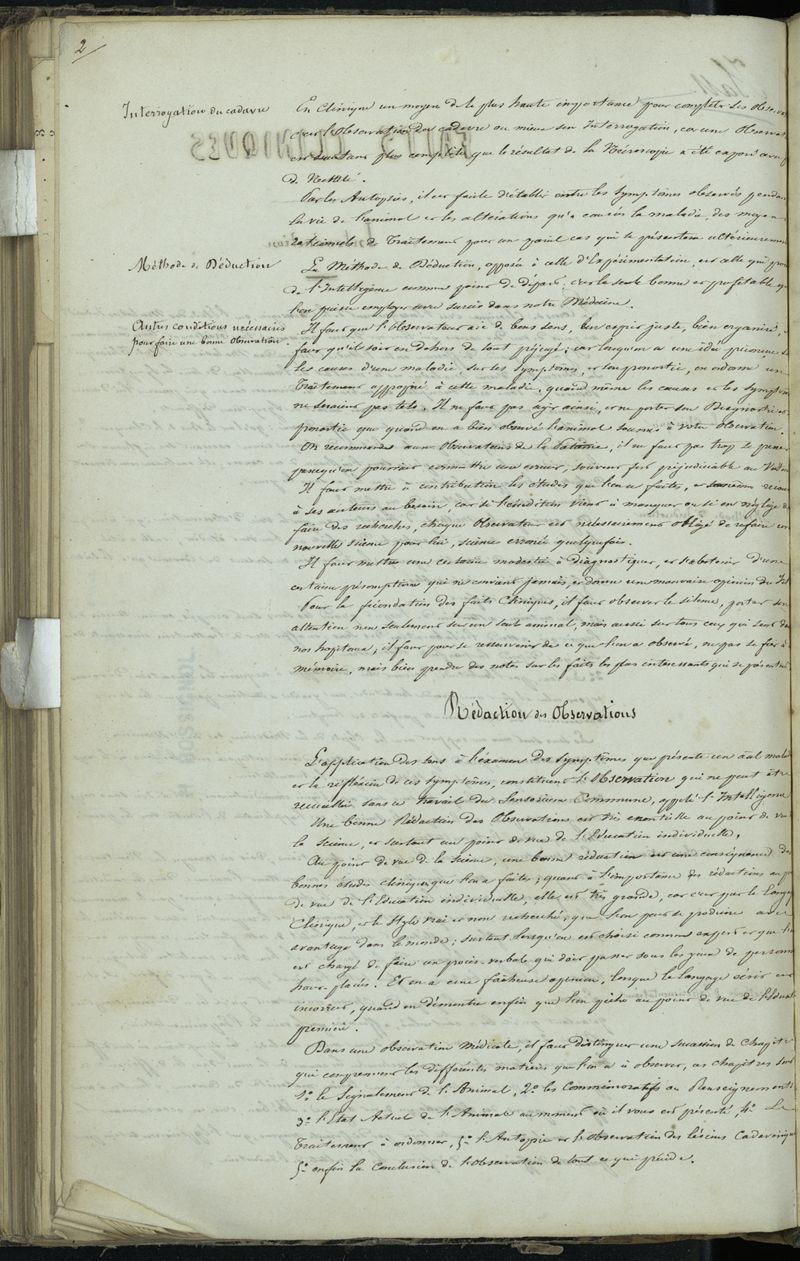 2
Interrogation du cadavre
En Clinique un moyen de la plus haute importance pour compléter les observa
c'est l'observation du cadavre ou mieux son Interrogation, car une observat
est d'autant plus complète que le résultat de la Nécroscopie a été exposé avec
de Netteté.
Par les Autopsies, il est facile d'établir entre les symptômes observés pendan
la vie de l'animal et les altérations qu'a causés la maladie, des moyen
rationnels de Traitement pour un pareil cas qui se présentera ultérieuremen
Méthode de Déduction
La Méthode de Déduction, opposée à celle d'Expérimentation, est celle qui pren
de l'Intelligence comme point de départ; c'est la seule bonne et profitable q
l'on puisse employer avec succès dans notre Médecine.
Autres conditions nécessaires
pour faire une bonne observation
Il faut que l'observateur aie de bons sens, bon esprit juste, bien organisé,
faut qu'il soit en dehors de tout préjugé; car lorsqu'on a une idée préconçue s
les causes d'une maladie, sur les symptômes, et son pronostic, on ordonne un
Traitement approprié à cette maladie, quand même les causes et les symptôm
ne seraient pas tels. Il ne faut pas agir ainsi, et ne porter son Diagnostic et
pronostic que quand on a bien observé l'animal soumis à votre observation.
On recommande aux observateurs de la Patience, il ne faut pas trop se presser
parcequ'on pourrait commettre une erreur, souvent fort préjudiciable au
Il faut mettre à contribution les études que l'on a faites, et
à ses auteurs au besoin, car si l'érudition vient à manquer ou si on néglige de
faire des recherches, chaque observateur est nécessairement obligé de refaire une
nouvelle science pour lui, science erronée quelquefois.
Il faut mettre une certaine modestie à diagnostiquer, et s'abstenir d'une
certaine présomption qui ne convient jamais, et donne une mauvaise opinion du
Pour la fécondation des faits Cliniques, il faut observer le silence, porter son
attention non seulement sur un seul animal, mais aussi sur tous ceux qui sont da
nos hopitaux, il faut pour se ressouvenir de ce que l'on a observé, ne pas se fier à
mémoire, mais bien prendre des notes sur les faits les plus intéressants qui se présentent
Rédaction des Observations
L'application des sens à l'examen des symptômes que présente un aal malad
et la réflexion de ces symptômes, constituent l'Observation qui ne peut être
recueillie sans ce travail du Sensorium Commune, appelé l'Intelligence
Une bonne Rédaction des Observations est très essentielle au point de vue
la science, et surtout au point de vue de l'Education individuelle.
Au point de vue de la Science, une bonne rédaction est une conséquence des
bonnes études cliniques que l'on a faites; quant à l'importance des rédactions au po
de vue de l'Education individuelle, elle est très grande, car c'est par le langage
Clinique, et le style vrai et non recherché, que l'on peut se produire avec
avantage dans le monde; surtout lorsqu'on est choisi comme expert et que l'on
est chargé de faire un procès-verbale qui doit passer sous les yeux de personn
haut placés. Et on a une fâcheuse opinion, lorsque le langage écrit est
incorrect, quand on démontre enfin que l'on pèche au point de vue de l'Educat
première.
Dans une observation Médicale, il faut distinguer une succession de Chapitr
qui comprennent les différentes matières que l'on a à observer, ces chapitres sont
1° le Signalement de l'Animal, 2° les Commémoratifs ou Renseignements
3° l'Etat Actuel de l'Animal au moment où il vous est présenté, 4° Le
Traitement à ordonner, 5° l'Autopsie et l'observation des lésions Cadavérique
5° enfin la Conclusion de l'observation de tout ce qui précède.